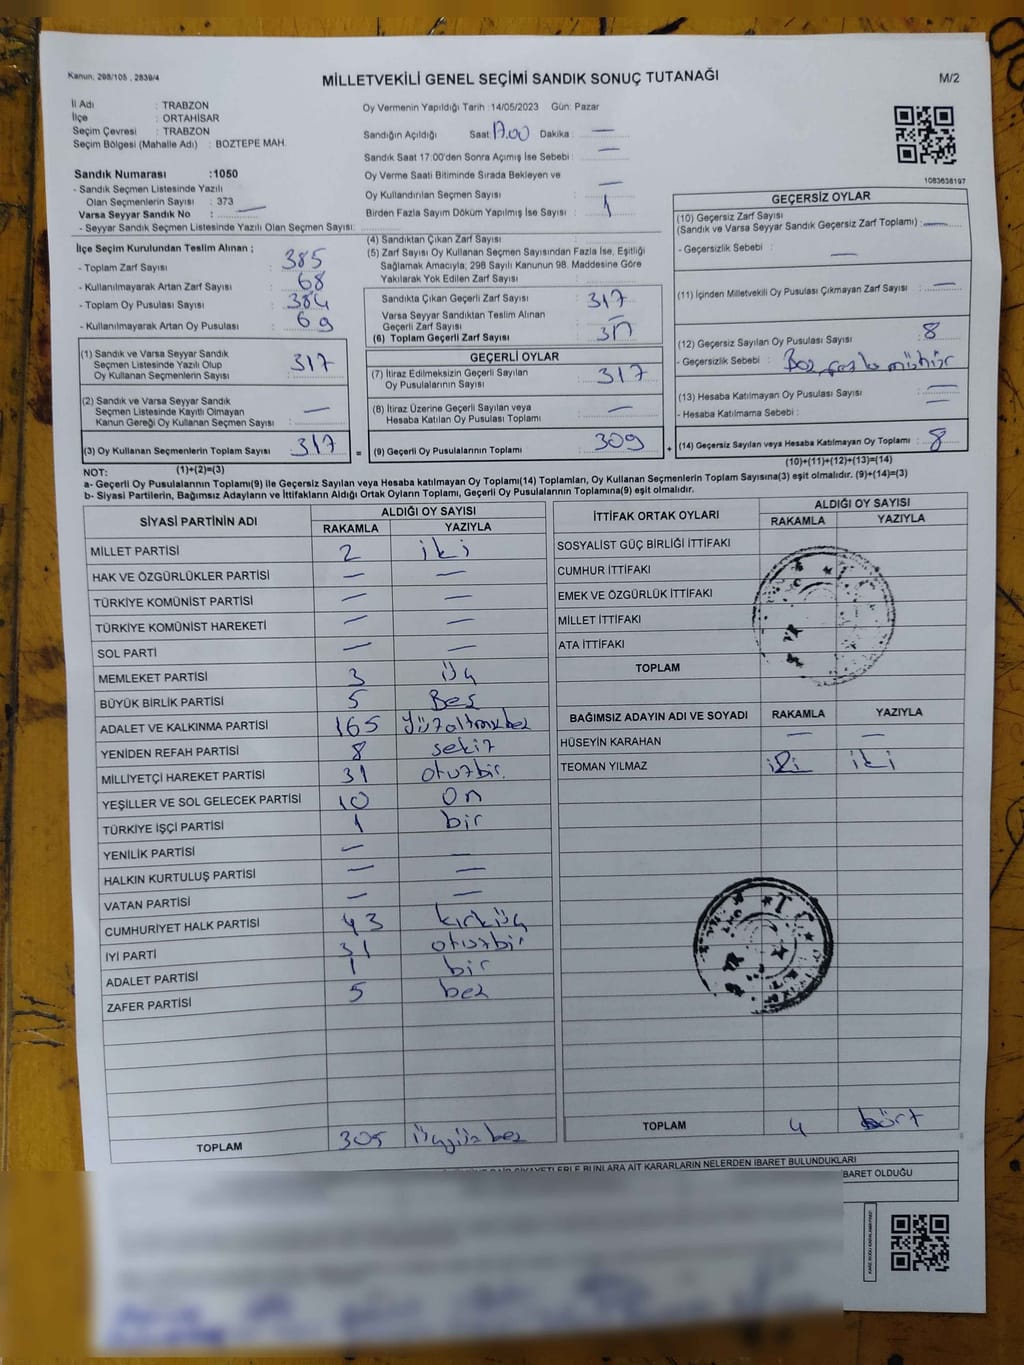 Kanun, 298/105 , 2839/4
MİLLETVEKİLİ GENEL SEÇİMİ SANDIK SONUÇ TUTANAĞI
M/2
İl Adı : TRABZON
İlçe : ORTAHİSAR
Seçim Çevresi : TRABZON
Seçim Bölgesi (Mahalle Adı) : BOZTEPE MAH.
Sandık Numarası :1050
- Sandık Seçmen Listesinde Yazılı
Olan Seçmenlerin Sayısı : 373
Varsa Seyyar Sandık No : —
- Seyyar Sandık Seçmen Listesinde Yazılı Olan Seçmen Sayısı:
Oy Vermenin Yapıldığı Tarih :14/05/2023 Gün: Pazar
Sandığın Açıldığı Saat 17.00 Dakika : —
Sandık Saat 17:00'den Sonra Açılmış İse Sebebi : —
Oy Verme Saati Bitiminde Sırada Bekleyen ve
Oy Kullandırılan Seçmen Sayısı : —
Birden Fazla Sayım Döküm Yapılmış İse Sayısı : 1
1083638197
İlçe Seçim Kurulundan Teslim Alınan ;
- Toplam Zarf Sayısı : 385
- Kullanılmayarak Artan Zarf Sayısı : 68
- Toplam Oy Pusulası Sayısı : 384
- Kullanılmayarak Artan Oy Pusulası : 69
(1) Sandık ve Varsa Seyyar Sandık
Seçmen Listesinde Yazılı Olup
Oy Kullanan Seçmenlerin Sayısı : 317
(2) Sandık ve Varsa Seyyar Sandık
Seçmen Listesinde Kayıtlı Olmayan
Kanun Gereği Oy Kullanan Seçmen Sayısı : —
(3) Oy Kullanan Seçmenlerin Toplam Sayısı : 317
(1)+(2)=(3)
(4) Sandıktan Çıkan Zarf Sayısı :
(5) Zarf Sayısı Oy Kullanan Seçmen Sayısından Fazla İse, Eşitliği
Sağlamak Amacıyla, 298 Sayılı Kanunun 98. Maddesine Göre
Yakılarak Yok Edilen Zarf Sayısı :
Sandıkta Çıkan Geçerli Zarf Sayısı : 317
Varsa Seyyar Sandıktan Teslim Alınan
Geçerli Zarf Sayısı : —
(6) Toplam Geçerli Zarf Sayısı : 317
GEÇERLİ OYLAR
(7) İtiraz Edilmeksizin Geçerli Sayılan
Oy Pusulalarının Sayısı : 317
(8) İtiraz Üzerine Geçerli Sayılan veya
Hesaba Katılan Oy Pusulası Toplamı : —
= (9) Geçerli Oy Pusulalarının Toplamı : 309
GEÇERSİZ OYLAR
(10) Geçersiz Zarf Sayısı
(Sandık ve Varsa Seyyar Sandık Geçersiz Zarf Toplamı) : —
- Geçersizlik Sebebi : —
(11) İçinden Milletvekili Oy Pusulası Çıkmayan Zarf Sayısı : —
(12) Geçersiz Sayılan Oy Pusulası Sayısı : 8
- Geçersizlik Sebebi : Boş, fazla mühür
(13) Hesaba Katılmayan Oy Pusulası Sayısı : —
- Hesaba Katılmama Sebebi : —
+ (14) Geçersiz Sayılan veya Hesaba Katılmayan Oy Toplamı : 8
(10)+(11)+(12)+(13)=(14)
NOT:
a- Geçerli Oy Pusulalarının Toplamı(9) ile Geçersiz Sayılan veya Hesaba katılmayan Oy Toplamı(14) Toplamları, Oy Kullanan Seçmenlerin Toplam Sayısına(3) eşit olmalıdır. (9)+(14)=(3)
b- Siyasi Partilerin, Bağımsız Adayların ve İttifakların Aldığı Ortak Oyların Toplamı, Geçerli Oy Pusulalarının Toplamına(9) eşit olmalıdır.
SİYASİ PARTİNİN ADI ALDIĞI OY SAYISI
RAKAMLA YAZIYLA
MİLLET PARTİSİ 2 iki
HAK VE ÖZGÜRLÜKLER PARTİSİ — —
TÜRKİYE KOMÜNİST PARTİSİ — —
TÜRKİYE KOMÜNİST HAREKETİ — —
SOL PARTİ — —
MEMLEKET PARTİSİ 3 üç
BÜYÜK BİRLİK PARTİSİ 5 Beş
ADALET VE KALKINMA PARTİSİ 165 Yüzaltmışbeş
YENİDEN REFAH PARTİSİ 8 sekiz
MİLLİYETÇİ HAREKET PARTİSİ 31 otuzbir
YEŞİLLER VE SOL GELECEK PARTİSİ 10 On
TÜRKİYE İŞÇİ PARTİSİ 1 bir
YENİLİK PARTİSİ — —
HALKIN KURTULUŞ PARTİSİ — —
VATAN PARTİSİ — —
CUMHURİYET HALK PARTİSİ 43 kırküç
İYİ PARTİ 31 otuzbir
ADALET PARTİSİ 1 bir
ZAFER PARTİSİ 5 beş
TOPLAM 305 Üçyüz beş
İTTİFAK ORTAK OYLARI ALDIĞI OY SAYISI
RAKAMLA YAZIYLA
SOSYALİST GÜÇ BİRLİĞİ İTTİFAKI
CUMHUR İTTİFAKI
EMEK VE ÖZGÜRLÜK İTTİFAKI
MİLLET İTTİFAKI
ATA İTTİFAKI
TOPLAM
BAĞIMSIZ ADAYIN ADI VE SOYADI RAKAMLA YAZIYLA
HÜSEYİN KARAHAN — —
TEOMAN YILMAZ iki iki
T.C.
TOPLAM 4 dört
ŞİKAYETLERLE BUNLARA AİT KARARLARIN NELERDEN İBARET BULUNDUKLARI
İBARET OLDUĞU